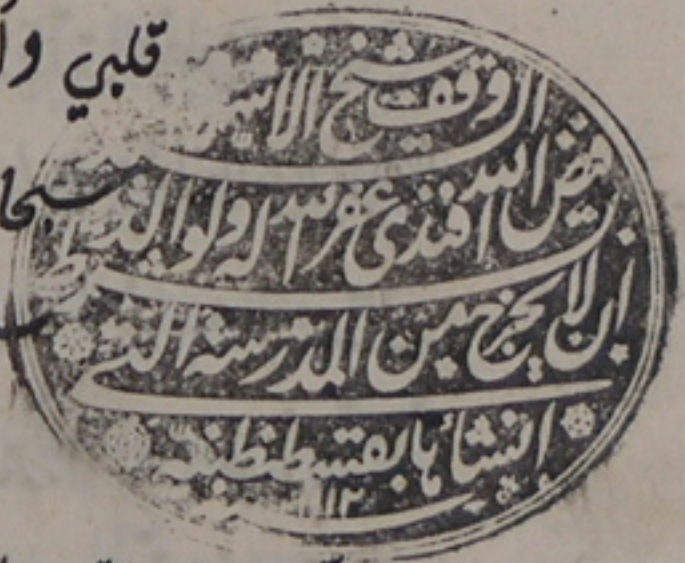 قلبي
وقف شيخ الاسلام
فيض الله افندى غفر الله له ولوالديه
بشرط ان لا يخرج من المدرسة التى
انشأها بقسطنطينية
١١١٢